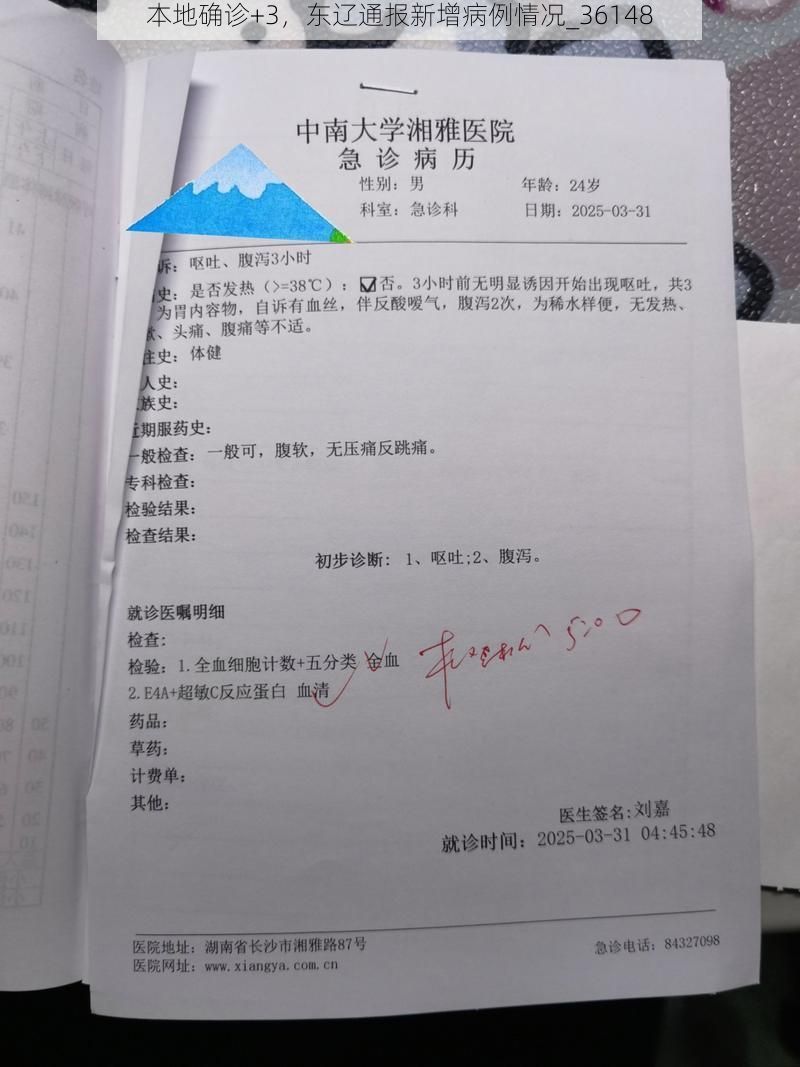 本地确诊+3，东辽通报新增病例情况_36148
中南大学湘雅医院
急诊病历
性别：男 年龄：24岁
科室：急诊科 日期：2025-03-31
诉：呕吐、腹泻3小时
史：是否发热（>=38℃）：☑否。3小时前无明显诱因开始出现呕吐，共3
为胃内容物，自诉有血丝，伴反酸嗳气，腹泻2次，为稀水样便，无发热、
、头痛、腹痛等不适。
往史：体健
人史：
族史：
近期服药史：
一般检查：一般可，腹软，无压痛反跳痛。
专科检查：
检验结果：
检查结果：
初步诊断：1、呕吐;2、腹泻。
就诊医嘱明细
检查：
检验：1.全血细胞计数+五分类 全血
2.E4A+超敏C反应蛋白 血清
5:00
药品：
草药：
计费单：
其他：
医生签名:刘嘉
就诊时间：2025-03-31 04:45:48
医院地址：湖南省长沙市湘雅路87号 急诊电话：84327098
医院网址：www.xiangya.com.cn
150
140
130
120
110
100
90
50 80
40 70
30
20
10